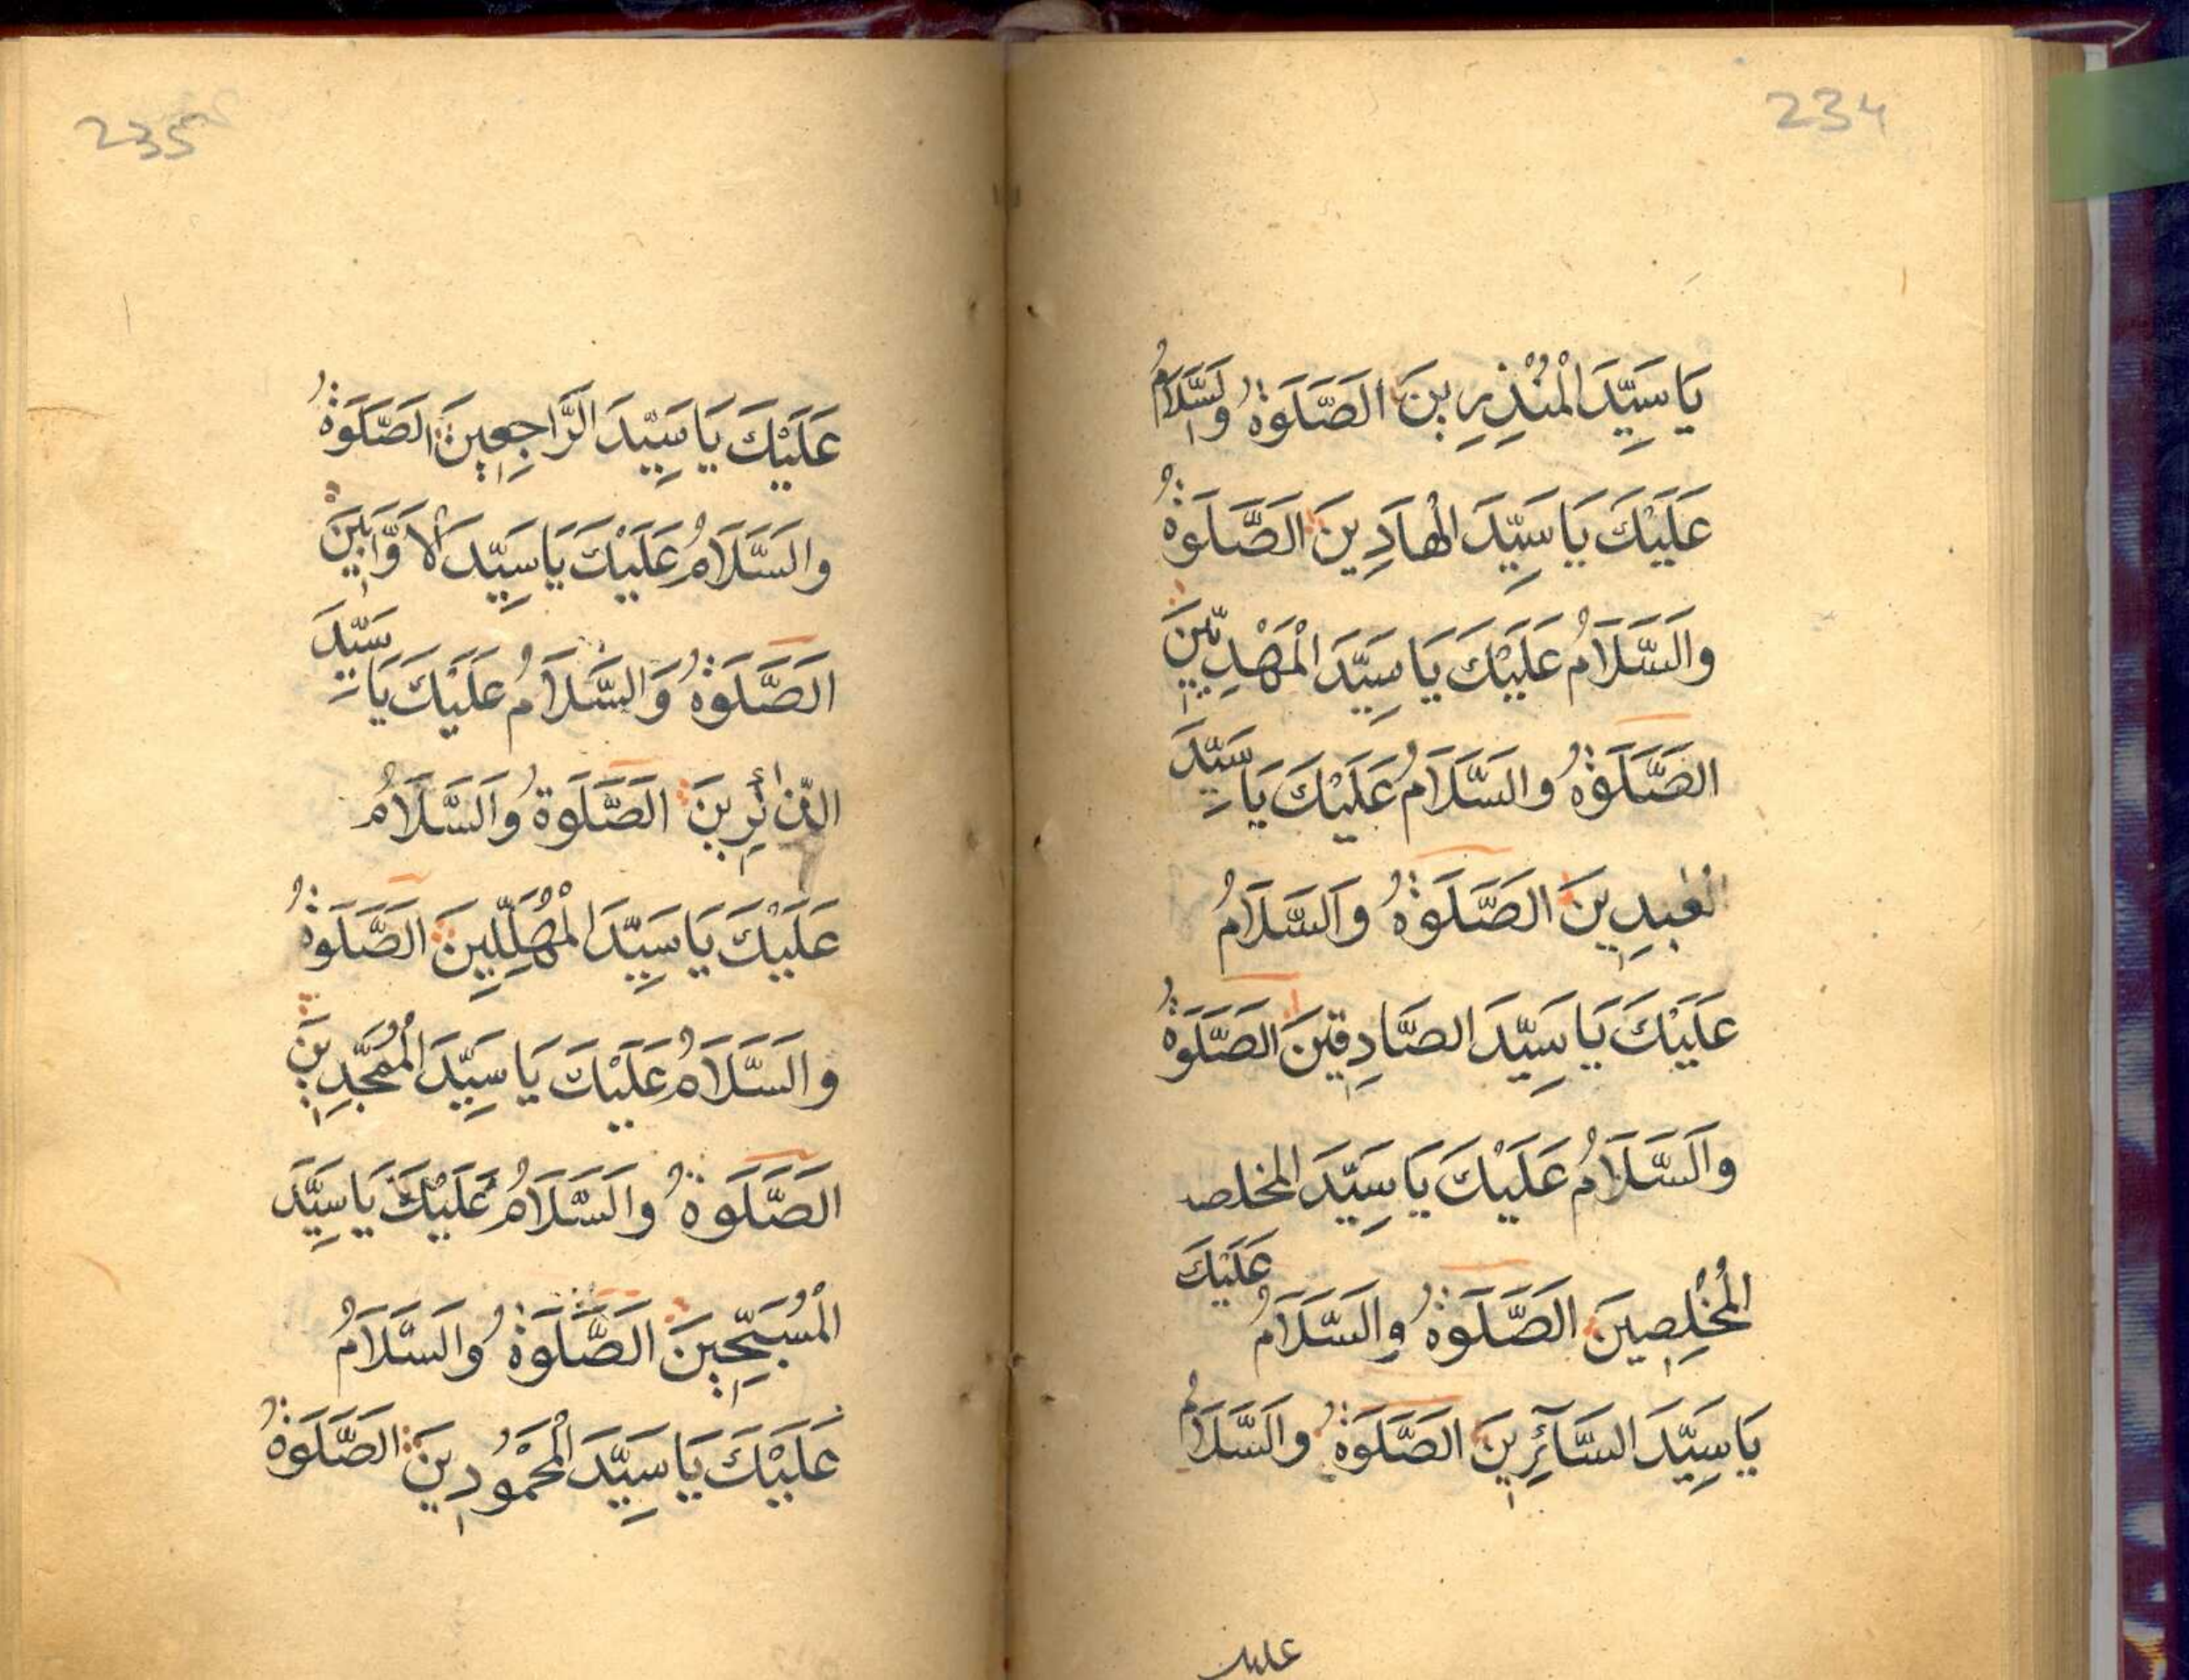 234
يَا سَيِّدَ الْمُنْذِرِينَ الصَّلَوٰةُ وَالسَّلَامُ
عَلَيْكَ يَا سَيِّدَ الْهَادِينَ الصَّلَوٰةُ
وَالسَّلَامُ عَلَيْكَ يَا سَيِّدَ الْمَهْدِيِّينَ
الصَّلَوٰةُ وَالسَّلَامُ عَلَيْكَ يَا سَيِّدَ
الصَّلَوٰةُ وَالسَّلَامُ
عَلَيْكَ يَا سَيِّدَ الصَّادِقِينَ الصَّلَوٰةُ
وَالسَّلَامُ عَلَيْكَ يَا سَيِّدَ المخلص
الْمُخْلِصِينَ الصَّلَوٰةُ وَالسَّلَامُ عَلَيْكَ
يَا سَيِّدَ السَّآئِرِينَ الصَّلَوٰةُ وَالسَّلَامُ
عليك
235
عَلَيْكَ يَا سَيِّدَ الرَّاجِعِينَ الصَّلَوٰةُ
وَالسَّلَامُ عَلَيْكَ يَا سَيِّدَ الْاَوَّابِينَ
الصَّلَوٰةُ وَالسَّلَامُ عَلَيْكَ يَا سَيِّدَ
الصَّلَوٰةُ وَالسَّلَامُ
عَلَيْكَ يَا سَيِّدَ الْمُهَلِّلِينَ الصَّلَوٰةُ
وَالسَّلَامُ عَلَيْكَ يَا سَيِّدَ الْمُمَجِّدِينَ
الصَّلَوٰةُ وَالسَّلَامُ عَلَيْكَ يَا سَيِّدَ
الْمُسَبِّحِينَ الصَّلَوٰةُ وَالسَّلَامُ
عَلَيْكَ يَا سَيِّدَ الْمَحْمُودِينَ الصَّلَوٰةُ